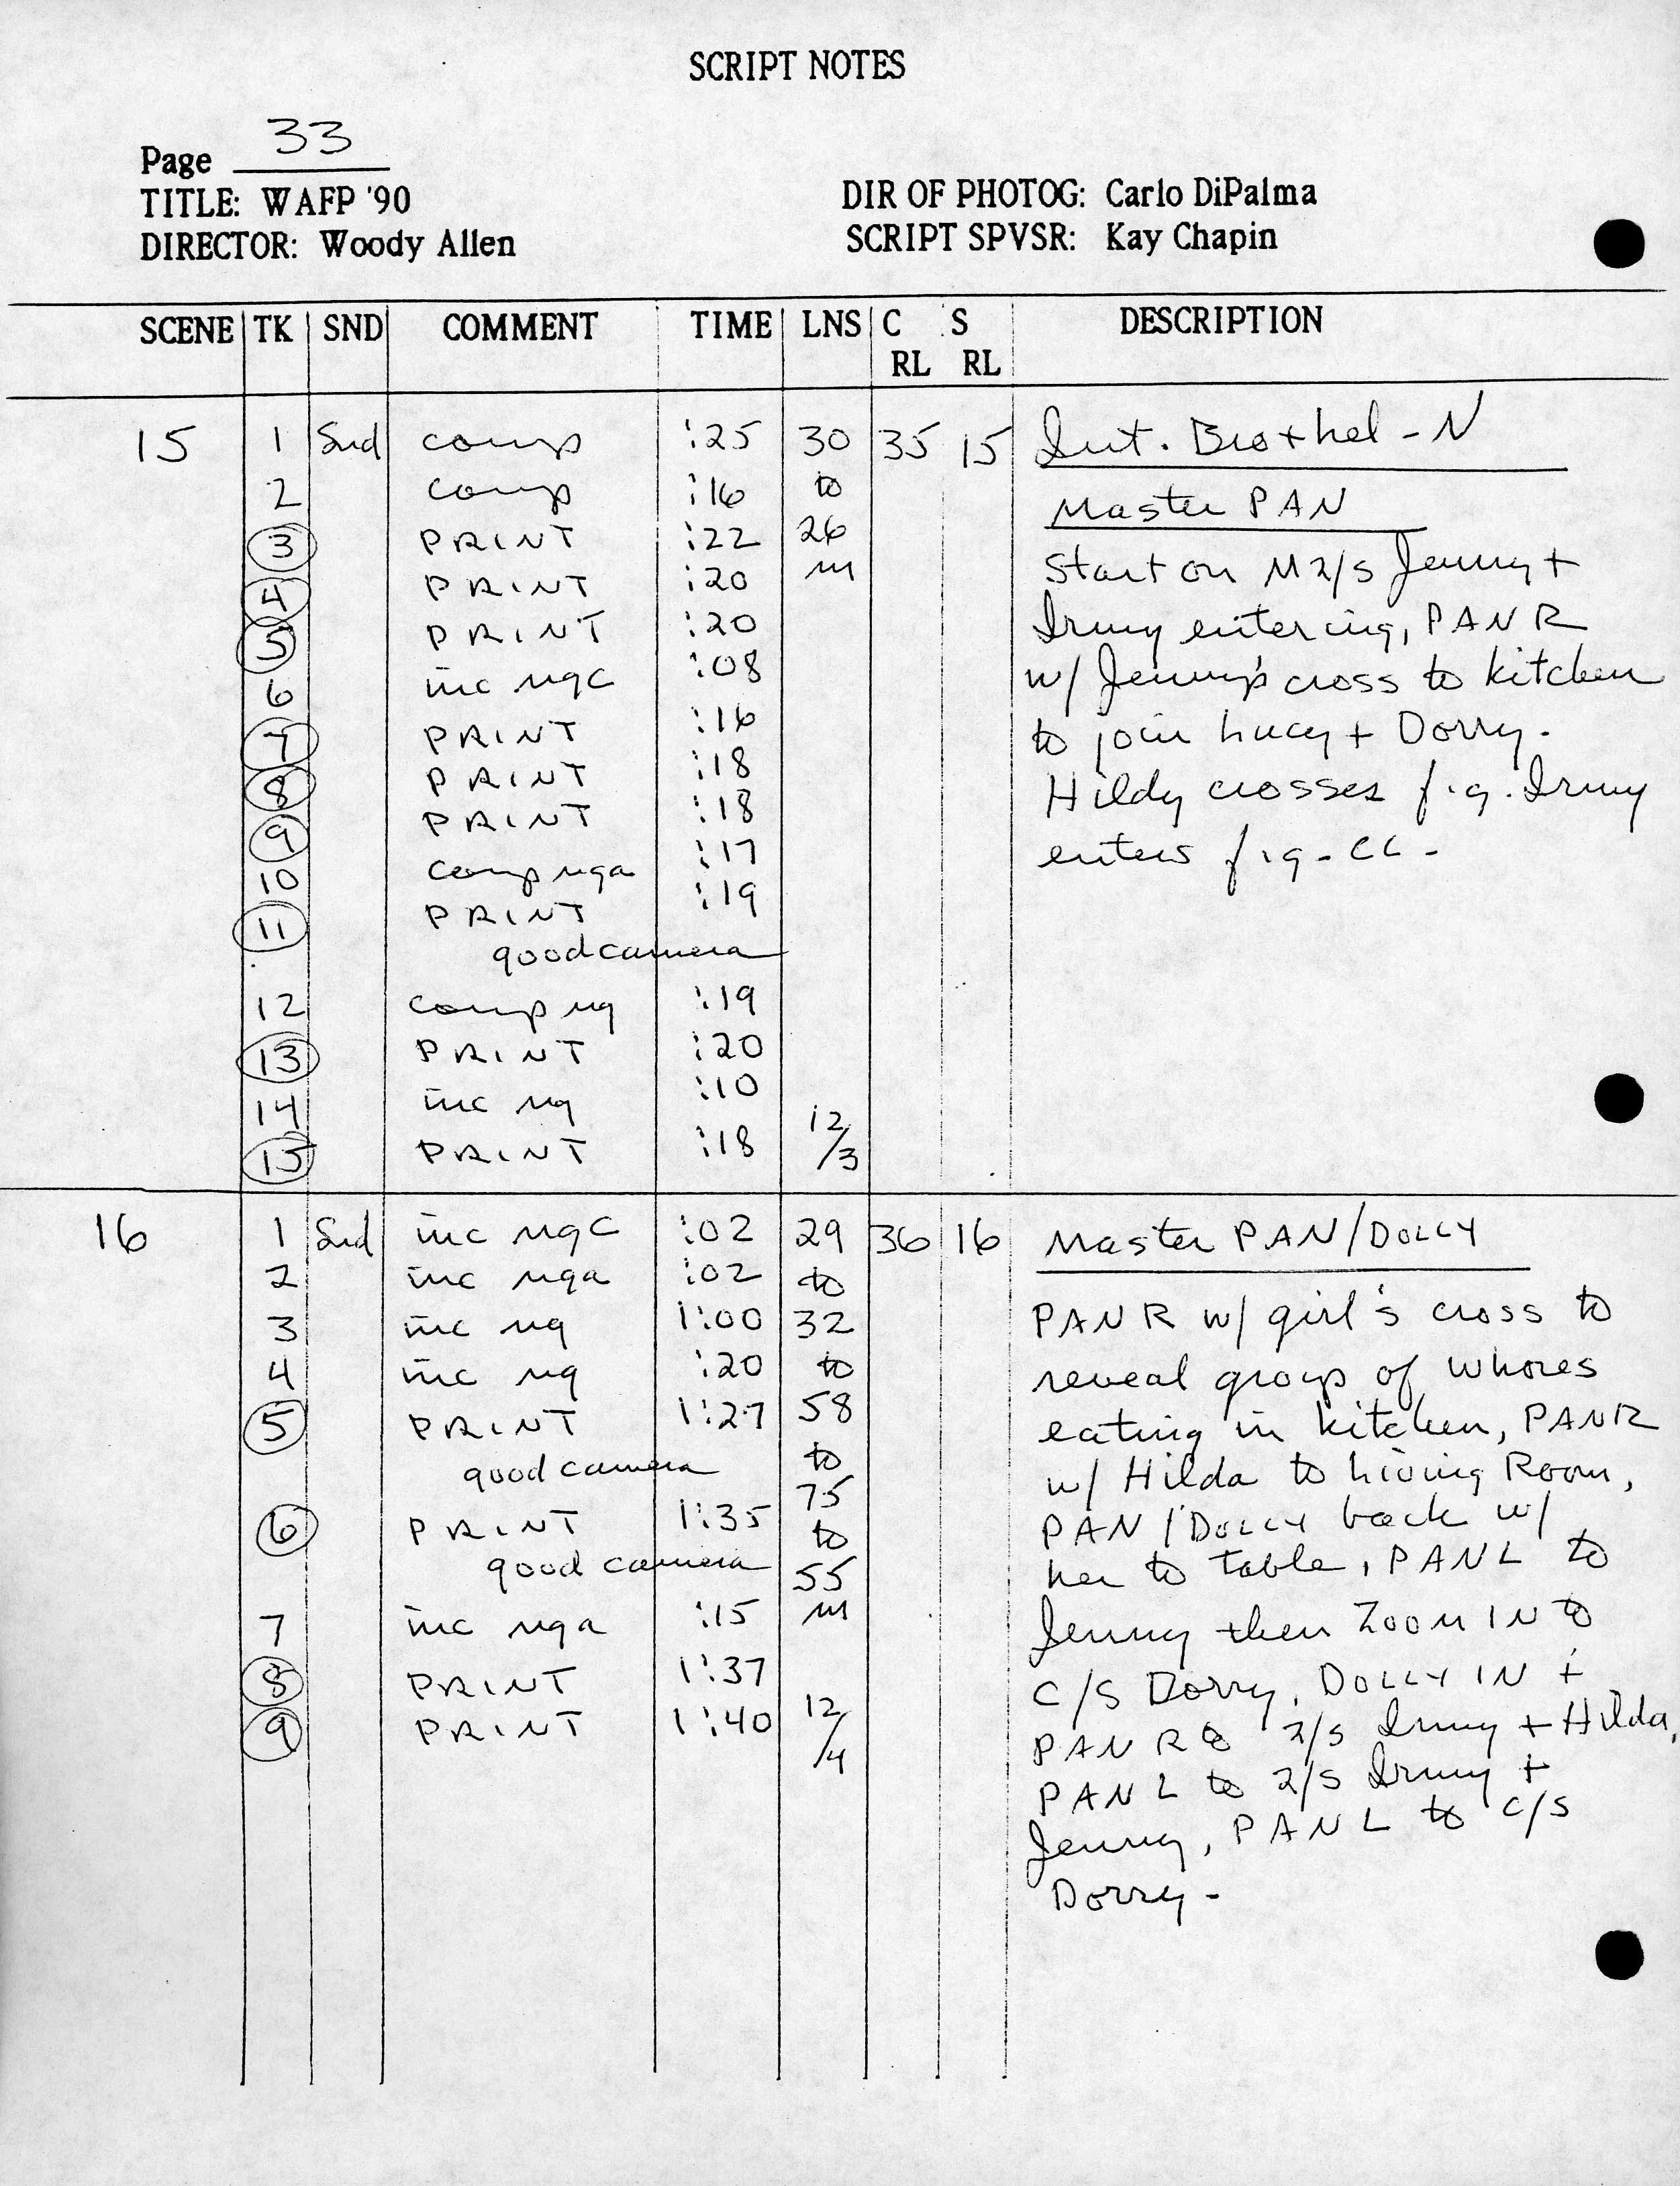 SCRIPT NOTES
Page 33
TITLE: WAFP '90
DIRECTOR: Woody Allen
DIR OF PHOTOG: Carlo DiPalma
SCRIPT SPVSR: Kay Chapin
SCENE TK SND COMMENT TIME LNS C RL S RL DESCRIPTION
15 1 Snd comp :25 30 35 15 Int. Brothel - N
2 comp :16 to Master PAN
3 PRINT :22 26
4 PRINT :20 m Start on M2/s Jenny +
5 PRINT :20 Irmy entering, PAN R
6 inc ngc :08 w/ Jenny's cross to kitchen
7 PRINT :16 to join Lucy + Dorry.
8 PRINT :18 Hildy crosses f.g. Irmy
9 PRINT :18
10 comp nga :17 enters f.g. -
11 PRINT :19
good camera
12 comp ng :19
13 PRINT :20
14 inc ng :10
15 PRINT :18 12/3
16 1 Snd inc ngc :02 29 36 16 Master PAN/DOLLY
2 inc nga :02 to
3 inc ng 1:00 32 PAN R w/ girl's cross to
4 inc ng :20 to reveal group of whores
5 PRINT 1:27 58 eating in kitchen, PAN R
good camera to w/ Hilda to Living Room,
75
6 PRINT 1:35 to PAN/DOLLY back w/
good camera 55 her to table, PAN L to
7 inc nga :15 m Jenny then ZOOM IN to
8 PRINT 1:37 C/S Dorry, DOLLY IN +
9 PRINT 1:40 12/4 PAN R to 2/s Irmy + Hilda,
PAN L to 2/s Irmy +
Jenny, PAN L to C/S
Dorry -